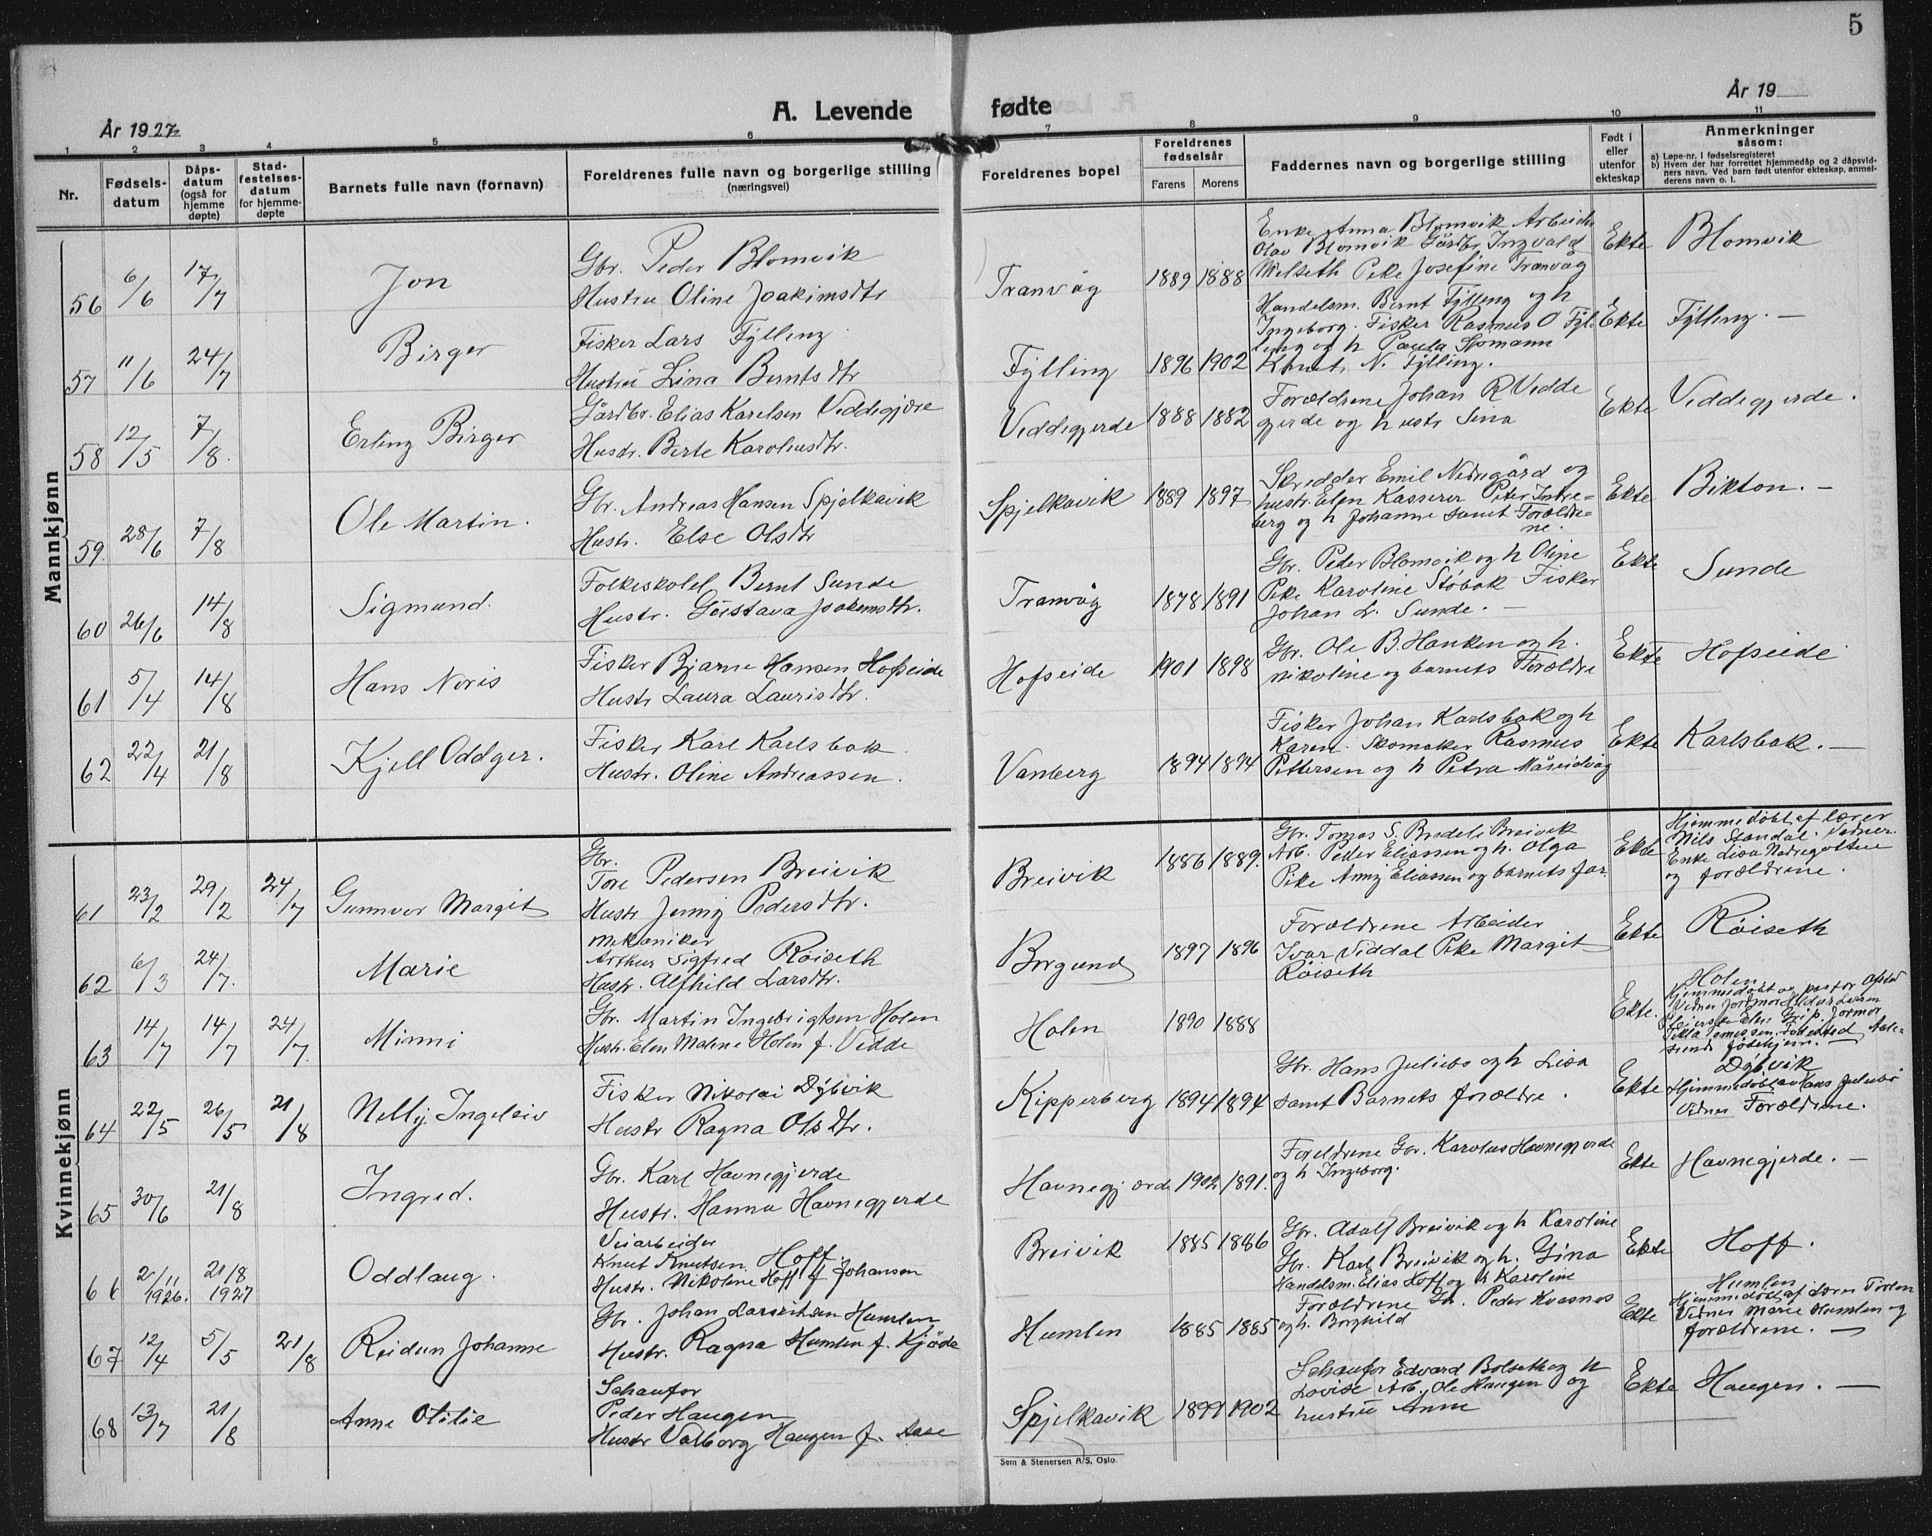 5
År 1927
A. Levende fødte
År 19
1 2 3 4 5 6 7 8 9 10 11
Nr.
Fødsels-
datum
Dåps-
datum
(også for
hjemme
døpte)
Stad-
festelses-
datum
for hjemme-
døpte
Barnets fulle navn (fornavn)
Foreldrenes fulle navn og borgerlige stilling
(næringsvei)
Foreldrenes bopel
Foreldrenes
fødselsår
Farens Morens
Faddernes navn og borgerlige stilling
Født i
eller
utenfor
ekteskap
Anmerkninger
såsom:
a) Løpe-nr. i fødselsregisteret
b) Hvem der har forrettet hjemmedåp og 2 dåpsvid-
ners navn. Ved barn født utenfor ekteskap, anmel-
derens navn o. l.
Mannkjønn
56 6/6 17/7 Jon
Gbr. Peder Blomvik
Hustru Oline Joakimsdtr
Tranvåg 1889 1888
Enke Anna Blomvik Arbeider
Olav Blomvik Gårdbr Ingvald
Melseth Pike Josefine Tranvåg
Ekte Blomvik
57 11/6 24/7 Birger
Fisker Lars Fylling
Hustru Lina Berntsdtr
Fylling 1896 1902
Handelsm. Bernt Fylling og h
Ingeborg. Fisker Rasmus O Fyl-
ling og h Paula
N. Fylling.
Ekte Fylling. —
58 12/5 7/8. Erling Birger
Gårdbr. Elias Karelsen Viddegjære
Hustr. Berte Karolusdtr.
Viddegjerde 1888 1882
Forældrene Johan R Vidde
gjerde og hustr Sina
Ekte Viddegjerde.
59. 28/6 7/8 Ole Martin.
Gbr. Andreas Hansen Spjelkavik
Hustr. Else Olsdtr
Spjelkavik 1889 1897
Skredder Emil Nedregård og
hustr. Elen Kasserer Peter Indre-
berg og h Johanne samt Forældre-
ne.
Ekte Bikton. —
60 26/6 14/8 Sigmund.
Folkeskolel Bernt Sunde
Hustr. Gustava Joakimsdtr.
Tranvåg 1878 1891
Gbr. Peder Blomvik og h Oline
Pike Karoline Støbak Fisker
Johan L. Sunde. —
Ekte Sunde
61 5/4 14/8 Hans Noris
Fisker Bjarne Hansen Hofseide
Hustr Laura Laurisdtr.
Hofseide 1901 1898
Gbr. Ole B. Hanken og h.
Nikoline og barnets Forældre
Ekte Hofseide
62 22/4 21/8 Kjell Oddger.
Fisker Karl Karlsbak
Hustr. Oline Andreassen.
Vanberg 1894 1894
Fisker Johan Karlsbak og h
Karen. Skomaker Rasmus
Pettersen og h Petra Måseidvåg
Ekte Karlsbak. —
Kvinnekjønn
61 23/2 29/2 24/7 Gunnvor Margit
Gbr.
Tore Pedersen Breivik
Hustr Jenny Pedersdtr.
Breivik 1886 1889.
Gbr. Tomas S. Breivik
Arb. Peder Eliassen og h. Olga
Pike Anny Eliassen og barnets far.
Ekte
Hjemmedøbt af lærer
Nils Standal. Vidner
Enke Lisa
og forældrene.
62 6/3 24/7. Marie
Mekaniker
Arthur Sigfred Röiseth
Hustr. Alfhild Larsdtr.
Borgund 1897 1896
Forældrene Arbeider
Ivar Viddal Pike Margit
Röiseth
Ekte Röiseth
63 14/7 14/7 24/7. Minni
Gbr. Martin Ingebrigtsen Holen
Hustr. Elen Malene Holen f. Vidde
Holen 1890 1888
Ekte.
Holen
Hjemmedøbt av pastor
Vidner Jormor
Elen Jormor
Tekla Aale-
sunds fødehjem. —
64 22/5 26/5 21/8 Nelly Ingeleiv
Fisker Nikolai Dybvik
Hustr Ragna Olsdtr.
Kipperberg 1894 1894
Gbr. Hans Juliebø og h Lisa
samt Barnets forældre.
Ekte
Dybvik
Hjemmedøbt av Hans Juliebø
Vidner Forældrene.
65 30/6 21/8 Ingrid.
Gbr. Karl Havnegjerde
Hustr. Hanna Havnegjerde
Havnegjærde 1902 1891.
Foreldrene Gbr. Karolus Havnegjerde
og h Ingeborg.
Ekte Havnegjerde. —
66 2/11 1926. 21/8 1927 Oddlaug.
Veiarbeider
Knut Knutsen Hoff.
Hustr. Nikoline Hoff f Johansen
Breivik 1885 1886
Gbr. Adolf Breivik og h Karoline
Gbr. Karl Breivik og h. Gina
Handelsm. Elias Hoff og h Karoline
Ekte Hoff.
67 12/4 5/5 21/8 Reidun Johanne
Gbr. Johan Lauritsen Humlen
Hustr. Ragna Humlen f. Kjöde
Humlen 1885 1885
Forældrene Gbr. Peder Kvasnes
og h. Borghild
Ekte
Humlen
Hjemmedøbt af lærer
Vidner Marie Humlen og
forældrene. —
68 13/7 21/8 Anne Otilie
Schaufør
Peder Haugen
Hustr Valborg Haugen f. Aase
Spjelkavik 1899 1902
Schaufør Edvard Bolseth og h
Lovise Arb. Ole Haugen og
hustru Anne
Ekte Haugen. —
Sem & Stenersen A/S, Oslo.